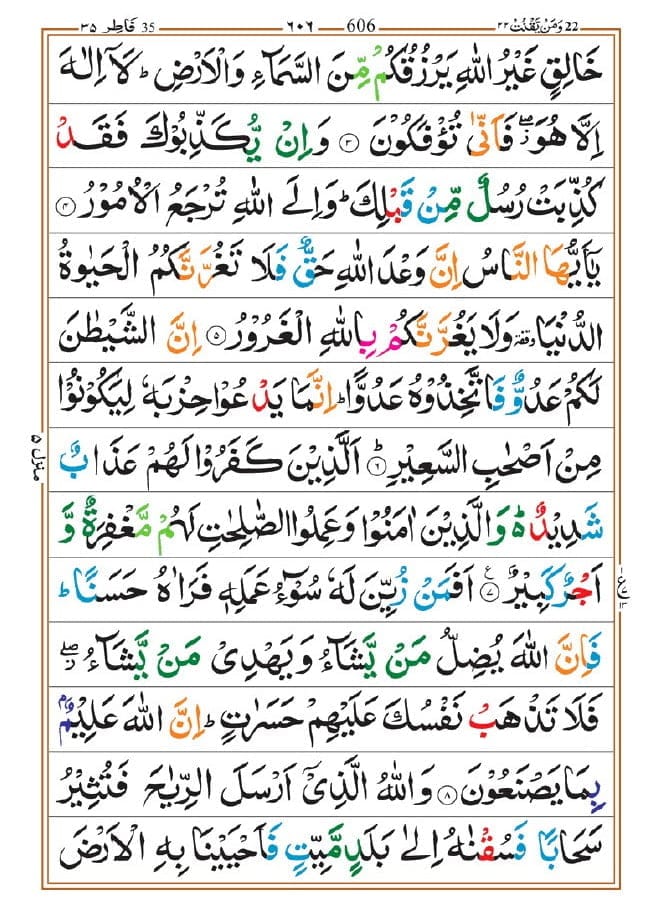 22 وَمَن يَّقۡنُتۡ ۲۲ 606 ٦٠٦ 35 فَاطِر ۳۵
خَالِقٍ غَيْرُ اللّٰهِ يَرْزُقُكُمْ مِّنَ السَّمَآءِ وَالْاَرْضِ ؕ لَاۤ اِلٰهَ
اِلَّا هُوَ ۖ فَاَنّٰى تُؤْفَكُوْنَ ۳ وَاِنْ يُّكَذِّبُوْكَ فَقَدْ
كُذِّبَتْ رُسُلٌ مِّنْ قَبْلِكَ ؕ وَاِلَى اللّٰهِ تُرْجَعُ الْاُمُوْرُ ۴
يٰۤاَيُّهَا النَّاسُ اِنَّ وَعْدَ اللّٰهِ حَقٌّ فَلَا تَغُرَّنَّكُمُ الْحَيٰوةُ
الدُّنْيَا وقفة وَلَا يَغُرَّنَّكُمْ بِاللّٰهِ الْغَرُوْرُ ۵ اِنَّ الشَّيْطٰنَ
لَكُمْ عَدُوٌّ فَاتَّخِذُوْهُ عَدُوًّا ؕ اِنَّمَا يَدْعُوْا حِزْبَهٗ لِيَكُوْنُوْا
مِنْ اَصْحٰبِ السَّعِيْرِ ؕ ۶ اَلَّذِيْنَ كَفَرُوْا لَهُمْ عَذَابٌ
منزل ۵
شَدِيْدٌ ؕ وَالَّذِيْنَ اٰمَنُوْا وَعَمِلُوا الصّٰلِحٰتِ لَهُمْ مَّغْفِرَةٌ وَّ
اَجْرٌ كَبِيْرٌ ۷ ع اَفَمَنْ زُيِّنَ لَهٗ سُوْٓءُ عَمَلِهٖ فَرَاٰهُ حَسَنًا ؕ
فَاِنَّ اللّٰهَ يُضِلُّ مَنْ يَّشَآءُ وَيَهْدِىْ مَنْ يَّشَآءُ ۖ
فَلَا تَذْهَبْ نَفْسُكَ عَلَيْهِمْ حَسَرٰتٍ ؕ اِنَّ اللّٰهَ عَلِيْمٌۢ
بِمَا يَصْنَعُوْنَ ۸ وَاللّٰهُ الَّذِىْۤ اَرْسَلَ الرِّيٰحَ فَتُثِيْرُ
سَحَابًا فَسُقْنٰهُ اِلٰى بَلَدٍ مَّيِّتٍ فَاَحْيَيْنَا بِهِ الْاَرْضَ